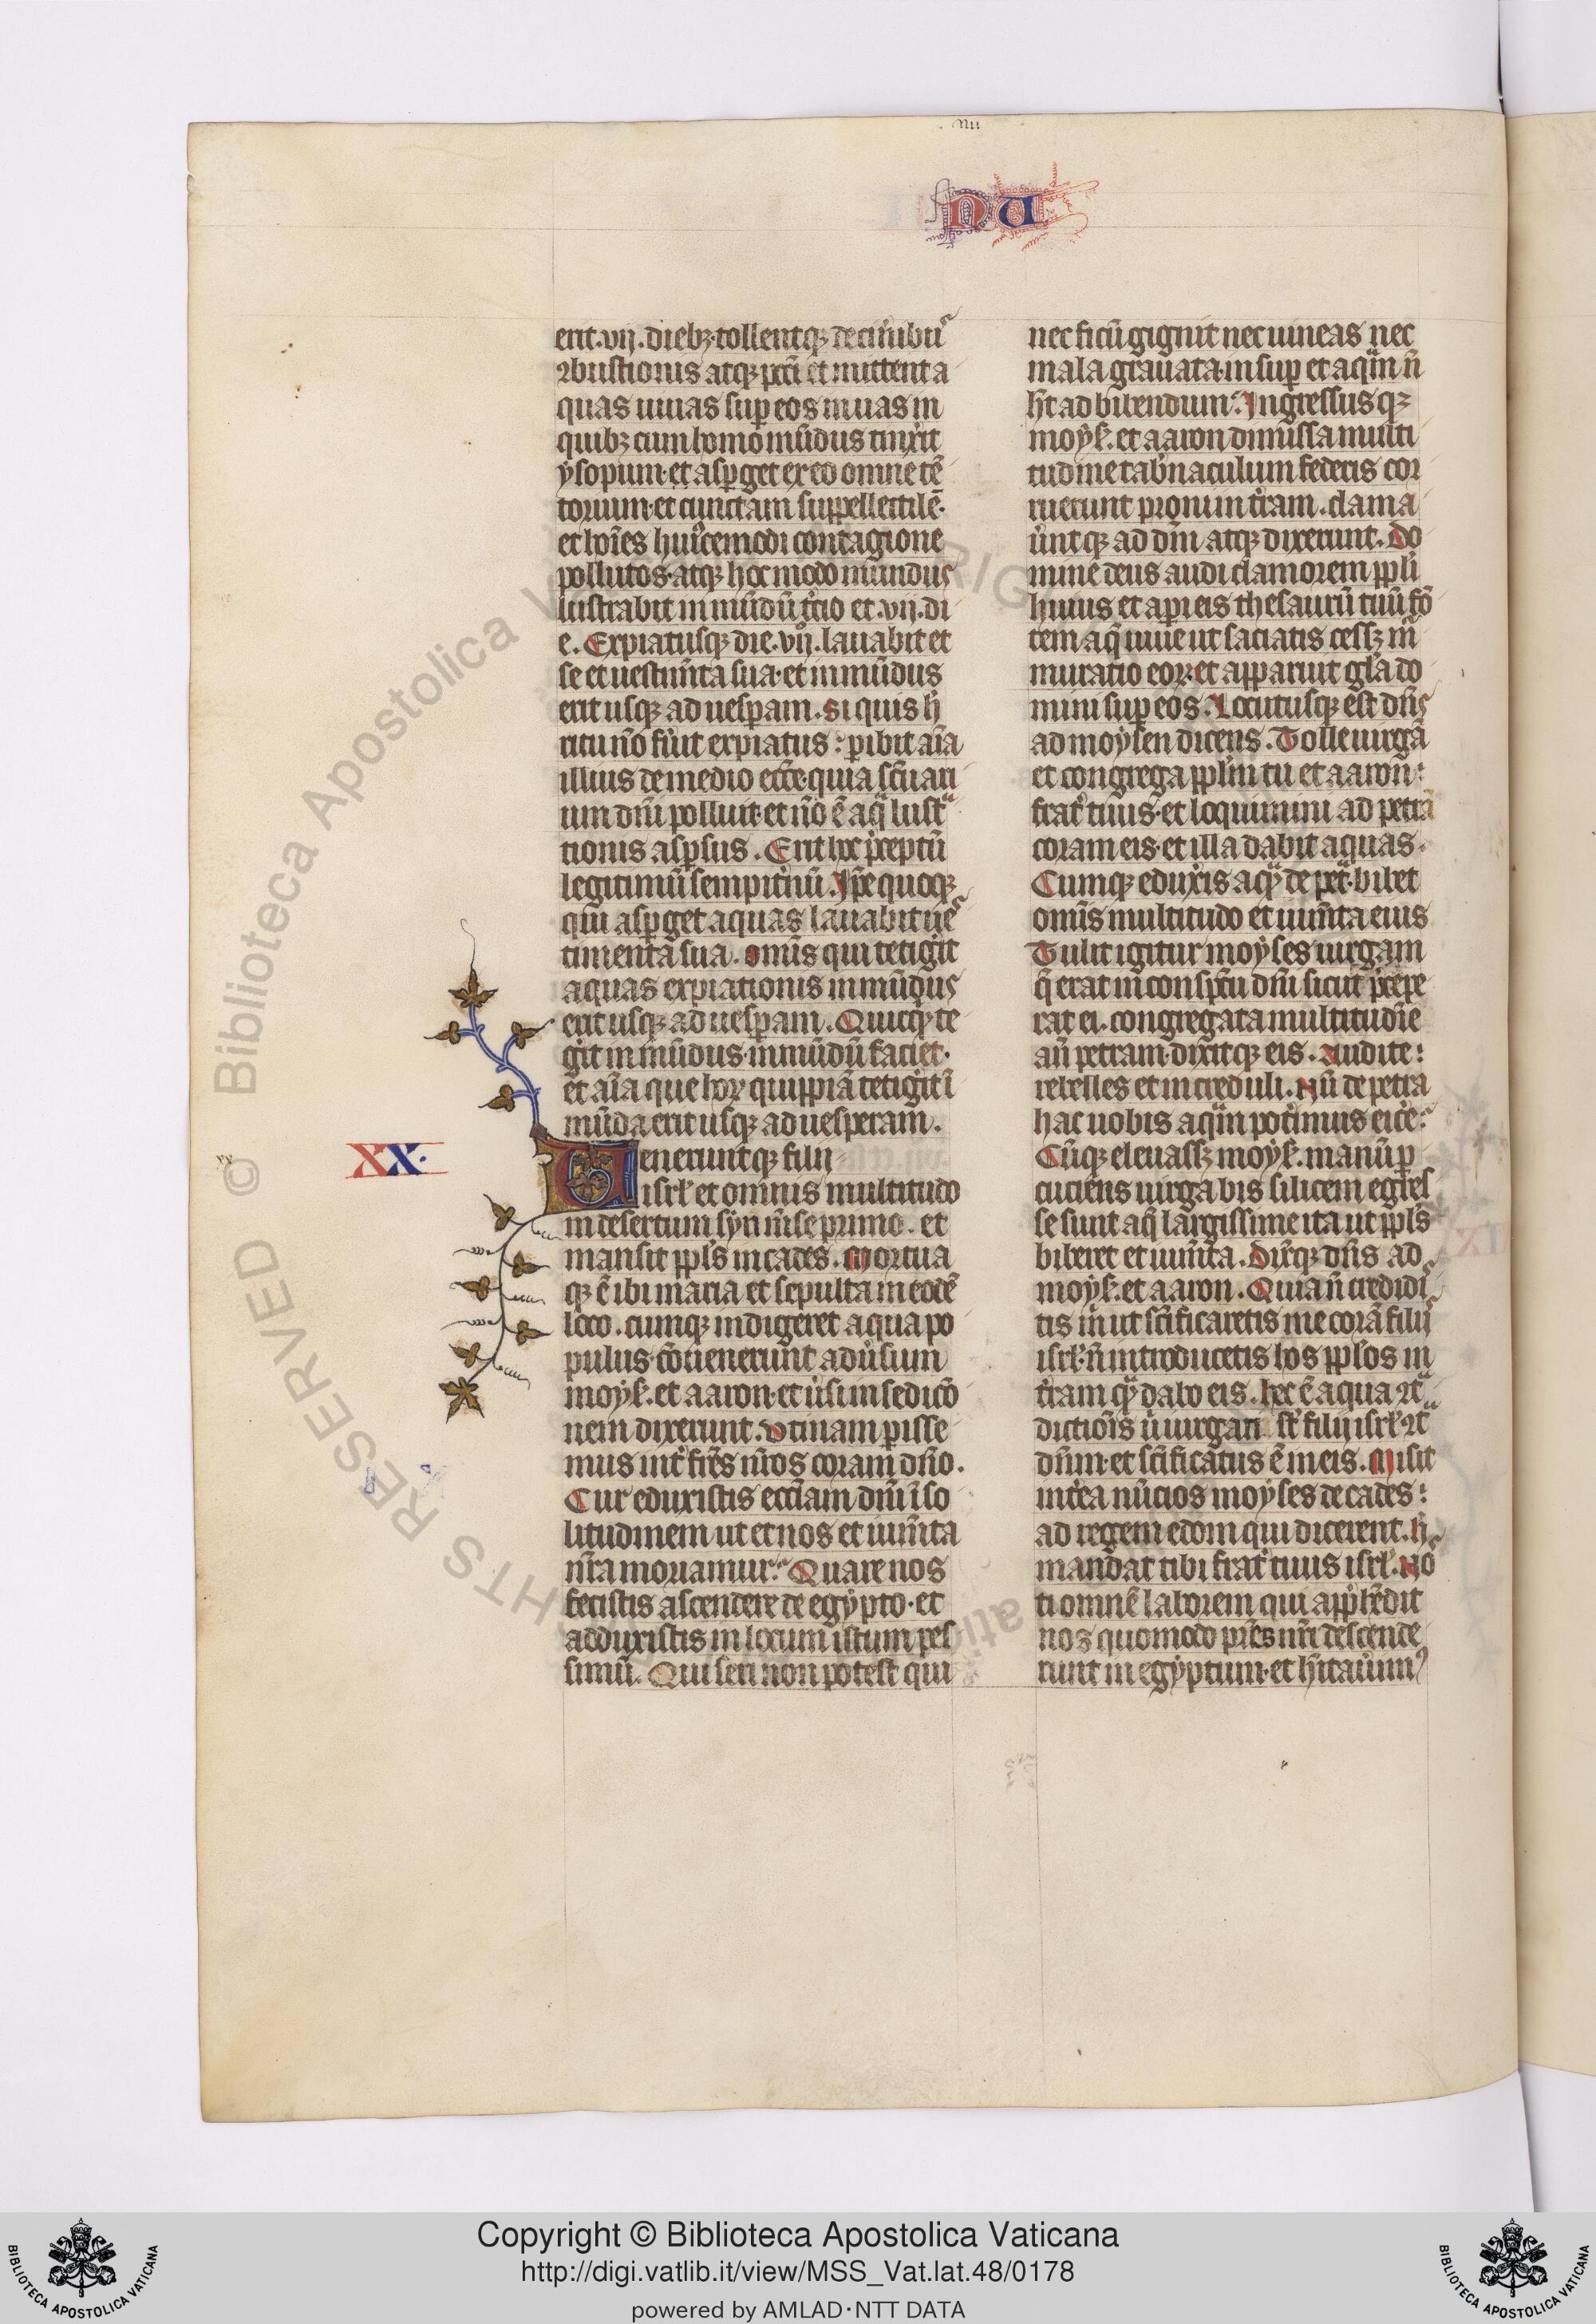 nu
NU
erit .vij. diebꝫ. tollentqꝫ de cinibuſ
ↄbustionis atqꝫ pccī et mittent a
quas uiuas suꝑ eos in uas in
quibꝫ cum homo mūdus tinxit
ysopum. et asꝑget ex eo omne tē
torium. et cunctam suppellectilē.
et hoīes huiꝰcemodi contagione
pollutos. atqꝫ hoc modo mundus
lustrabit inmūdū tͥcio et .vij. di
e. Expiatusqꝫ die .vij. lauabit et
se et uestimīta sua. et inmūdus
erit usqꝫ ad uesꝑam. Si quis h̄
ritu nō fūit expiatus: ꝑibit aīa
illius de medio ecc̄e. quia scūari
um dn̄i polluit. et nō ē aqͣ lustᵃ
tionis asꝑsus. Erit hoc p̄ceptū
legitimū sempitn̄ū. Ip̄e quoqꝫ
qui asꝑget aquas lauabit ueſ
timenta sua. Omīs qui tetigit
aquas expiationis inmūdus
erit usqꝫ ad uesꝑam. Quicqͥd te
git inmūdus. inmūdū faciet.
et aīa que hoꝝ quippiā tetigit ī
mūda erit usqꝫ ad uesperam.
XX.
xx
Ueneruntqꝫ filij
isrl̄ et omnis multitudo
in desertum syn mīse primo. et
mansit ppl̄s in cades. Mortua
qꝫ ē ibi maria et sepulta in eodē
loco. Cumqꝫ indigeret aqua po
pulus. cōuenerunt adūsum
moys̄. et aaron. et ūsi in sedicō
nem dixerunt. Utinam ꝑisse
mus int̄ frēs nr̄os coram dn̄o.
Cur eduxistis ecc̄iam dn̄i ī so
litudinem ut et nos et iumīta
nr̄a moriamur: Quare nos
fecistis ascendere de egypto. et
adduxistis in locum istum pes
simū. Qui seri non potest qui
nec ficū gignit nec uineas nec
mala granata. insuꝑ et aqͣm n̄
h̄t ad bibendum: Ingressusqꝫ
moys̄. et aaron dimissa multi
tudine tabn̄aculum federis cor
ruerunt proni in tr̄am. clama
ūntqꝫ ad dn̄m atqꝫ dixerunt. Do
mine deus audi clamorem ppl̄i
huius et aperi eis thesaurū tuū fō
tem aqͣ uiue ut saciatis cessꝫ mͬ
muratio eoꝝ. et apparuit gl̄a do
mini suꝑ eos. Locutusqꝫ est dn̄s
ad moysen dicens. Tolle uirgā
et congrega ppl̄m tu et aaron:
frat̄ tuus. et loquimini ad petrā
coram eis. et illa dabit aquas.
Cumqꝫ eduxis aqͣꝫ de petᵃ. bibet
omīs multitudo et iumīta eius
Tulit igitur moyses uirgam
q̄ erat in conspc̄tu dn̄i sicut p̄cepe
rat ei. congregata multitudīe
an̄ petram. dixitqꝫ eis. Audite:
rebelles et increduli. Nū de petra
hac uobis aqͣm potimus eice:
Cūqꝫ eleuassꝫ moys̄. manū ꝑ
cuciens uirga bis silicem egres
se sunt aqͣ largissime ita ut ppl̄s
biberet et iumīta. Dixqꝫ dn̄s ad
moys̄. et aaron. Quia n̄ credidiſ
tis in̄ ut sc̄ificaretis me corā filij
isrl̄. n̄ introducetis hos ppl̄os in
tr̄am qͣꝫ dabo eis. hec ē aqua ↄtᵃ
dictiōis ū iurgati st̄ filij isrl̄ ↄtᵃ
dn̄m. et sc̄ificatus ē in eis. Misit
int̄ea nūcios moyses de cades:
ad regem edom qui dicerent. h̄
mandat tibi frat̄ tuus isrl̄. Noſ
ti omnē laborem qui app̄hēdit
nos quomodo pr̄es nr̄i descende
runt in egyptum. et h̄itauimꝰ
Copyright © Biblioteca Apostolica Vaticana
http://digi.vatlib.it/view/MSS_Vat.lat.48/0178
powered by AMLAD·NTT DATA
BIBLIOTECA APOSTOLICA VATICANA
BIBLIOTECA APOSTOLICA VATICANA